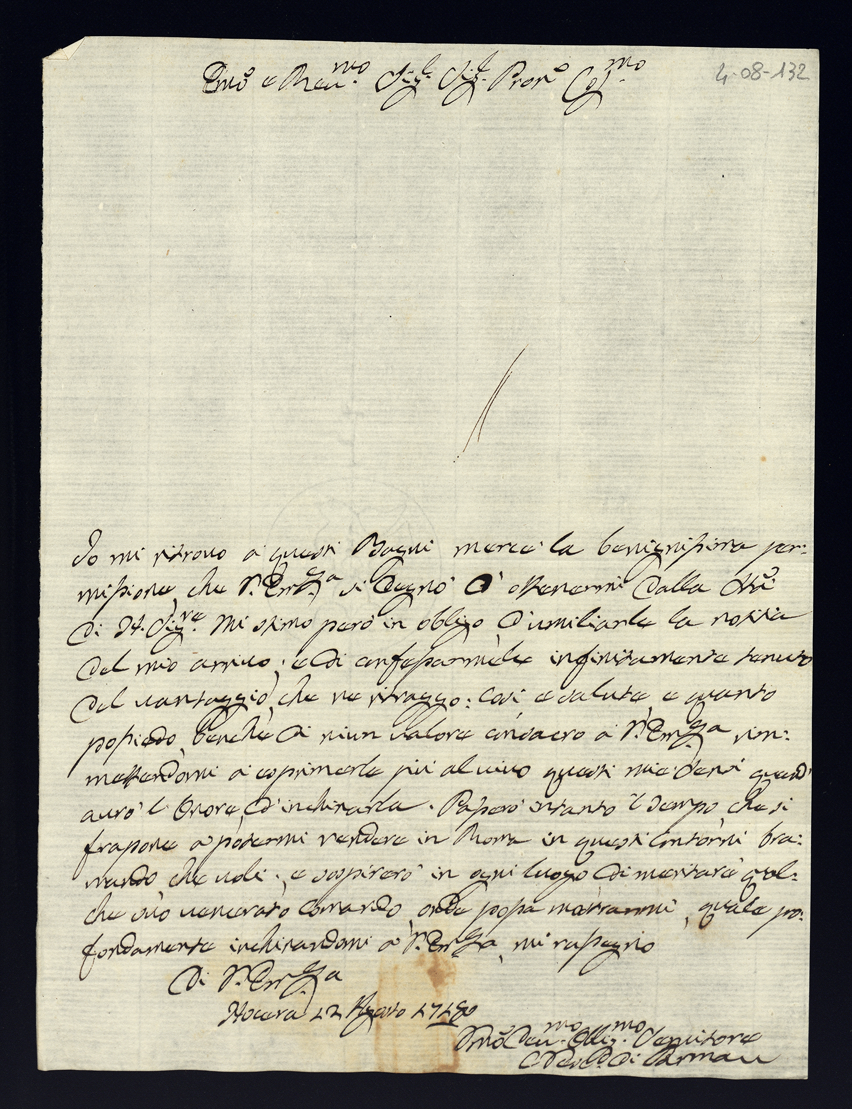 Emo e Reu.mo Sig.r Sig.r Pron.o Col.mo
4-08-132
Io mi ritrouo à questi Bagni mercè la benignissima per:
missione, che V. Em.za si degnò d'ottenermi dalla Stà
di N. Sig.re. Mi stimo però in obligo d'umiliarle la notitia
del mio arriuo, e di confessarmele infinitamente tenuto
del uantaggio, che ne ritraggo: così e salute, e quanto
possiedo, benche di niun ualore consacro à V. Em.za, rim:
mettendomi à esprimerle più al uiuo questi miei sensi quand'
aurò l'Onore d'inchinarla. Passerò intanto il tempo, che si
frapone à potermi rendere in Roma in questi contorni bra:
mando che uoli, e sospirerò in ogni luogo di meritare qual:
che suo uenerato comando, onde possa mostrarmi, quale pro:
fondamente inchinandomi à V. Em.za, mi rassegno
Di V. Em.za
Nocera 12 Agosto
Vmo Deu.mo Obl.mo Seruitore